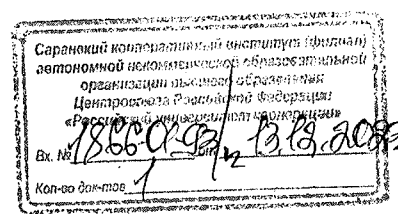 Саранский кооперативный институт (филиал)
автономной некоммерческой образовательной
организации высшего образования
Центросоюза Российской Федерации
«Российский университет кооперации»
Вх. №
Кол-во док-тов 1